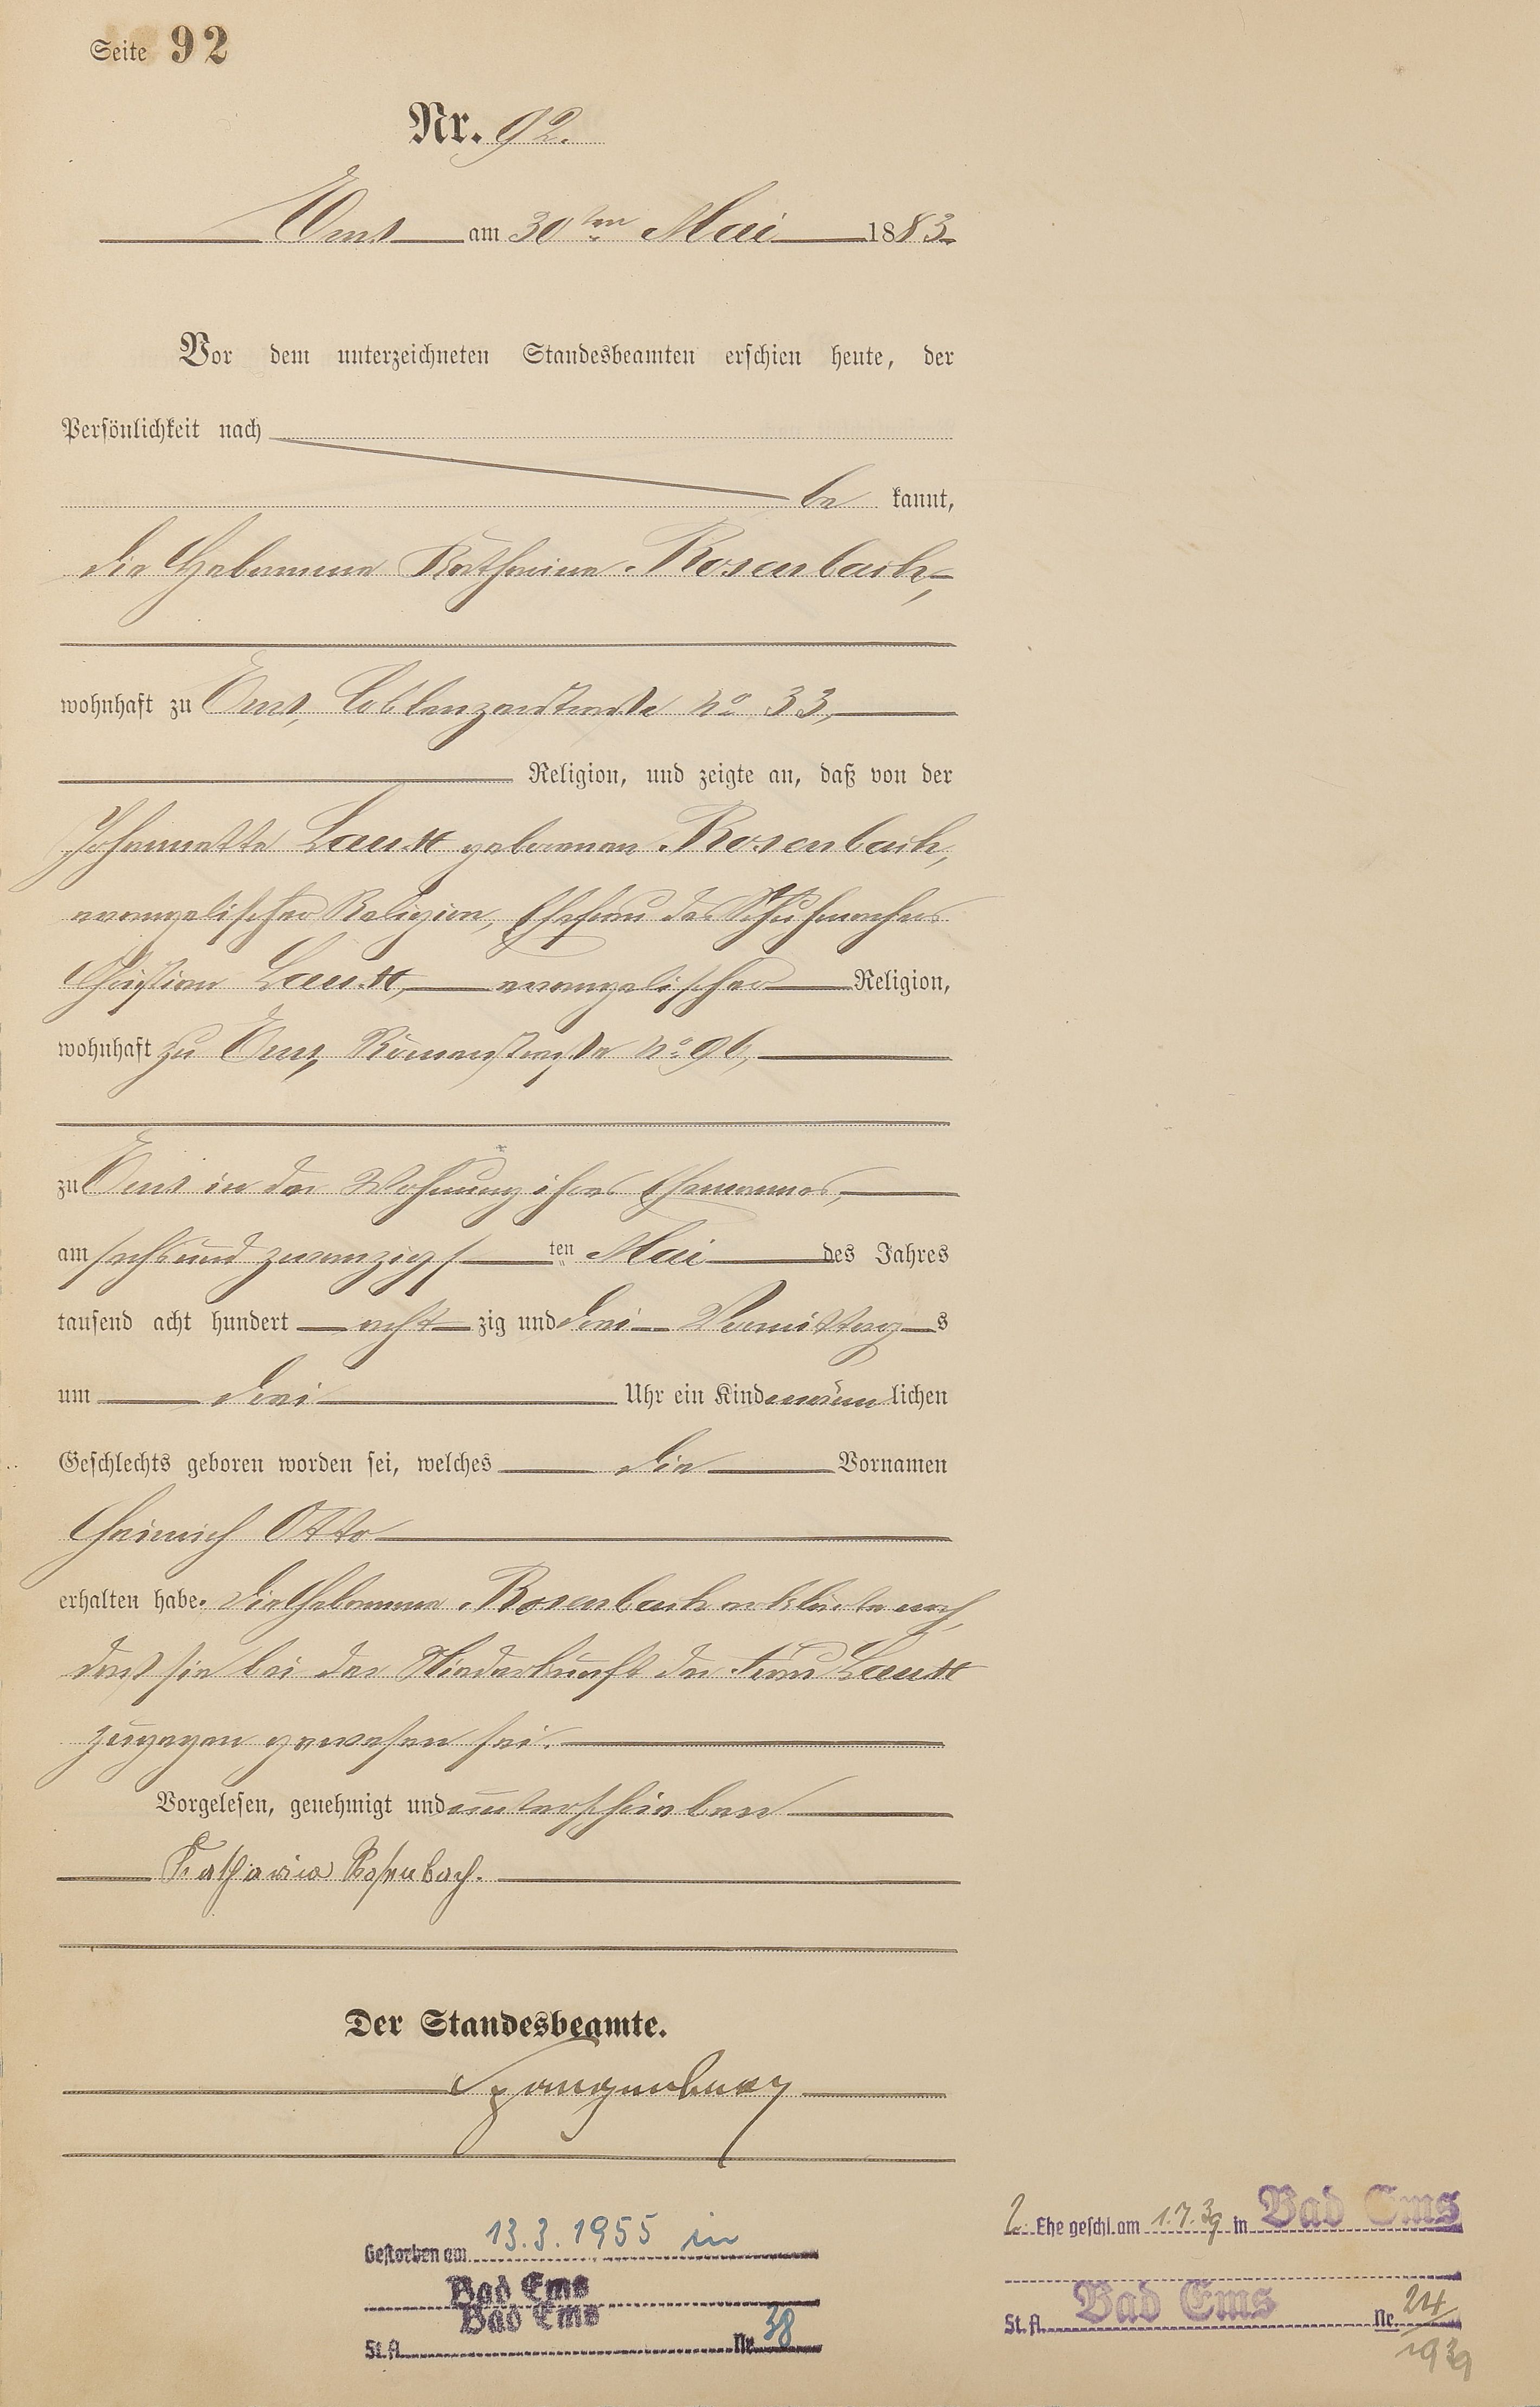 Seite 92
Nr. 92.
Ems am 30ten Mai 1883
Vor dem unterzeichneten Standesbeamten erschien heute, der
Persönlichkeit nach
be kannt,
die Hebamme Katharina Rosenbach,
wohnhaft zu Ems, Coblenzerstraße No 33,
Religion, und zeigte an, daß von der
Johannette Lautt geborenen Rosenbach,
evangelischer Religion, Ehefrau des Schuhmachers
Christian Lautt, evangelischer Religion,
wohnhaft zu Ems, Römerstraße No 96,
zu Ems in der Wohnung ihres Ehemannes,
am sechsundzwanzigs ten Mai des Jahres
tausend acht hundert acht zig und drei Vormittag s
um drei Uhr ein Kind männ lichen
Geschlechts geboren worden sei, welches die Vornamen
Heinrich Otto
erhalten habe. Die Hebamme Rosenbach erklärte noch,
daß sie bei der Niederkunft der Frau Lautt
zugegen gewesen sei.
Vorgelesen, genehmigt und unterschrieben
Katharina Rosenbach.
Der Standesbeamte.
Spangenberg
Gestorben am 13.3.1955 in
Bad Ems
Bad Ems
St. A. Nr. 38
2. Ehe geschl. am 1.7.39 in Bad Ems
St. A. Bad Ems Nr. 24/
1939